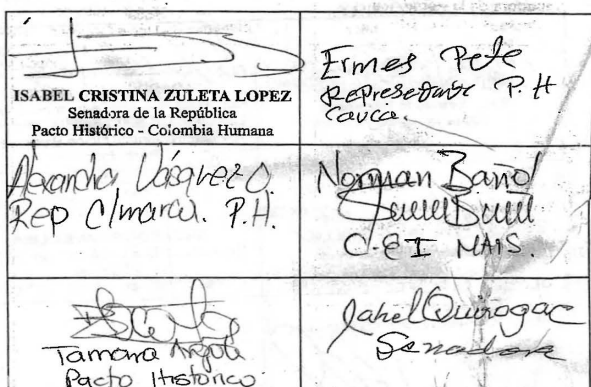 ISABEL CRISTINA ZULETA LOPEZ
Senadora de la República
Pacto Histórico - Colombia Humana
Ermes Pete
Representante P.H
Cauca.
Alexandra Vásquez O.
Rep C/marca. P.H.
Norman Bañol
C-EI MAIS.
Tamara Argote
Pacto Histórico
Jahel Quiroga C
Senadora